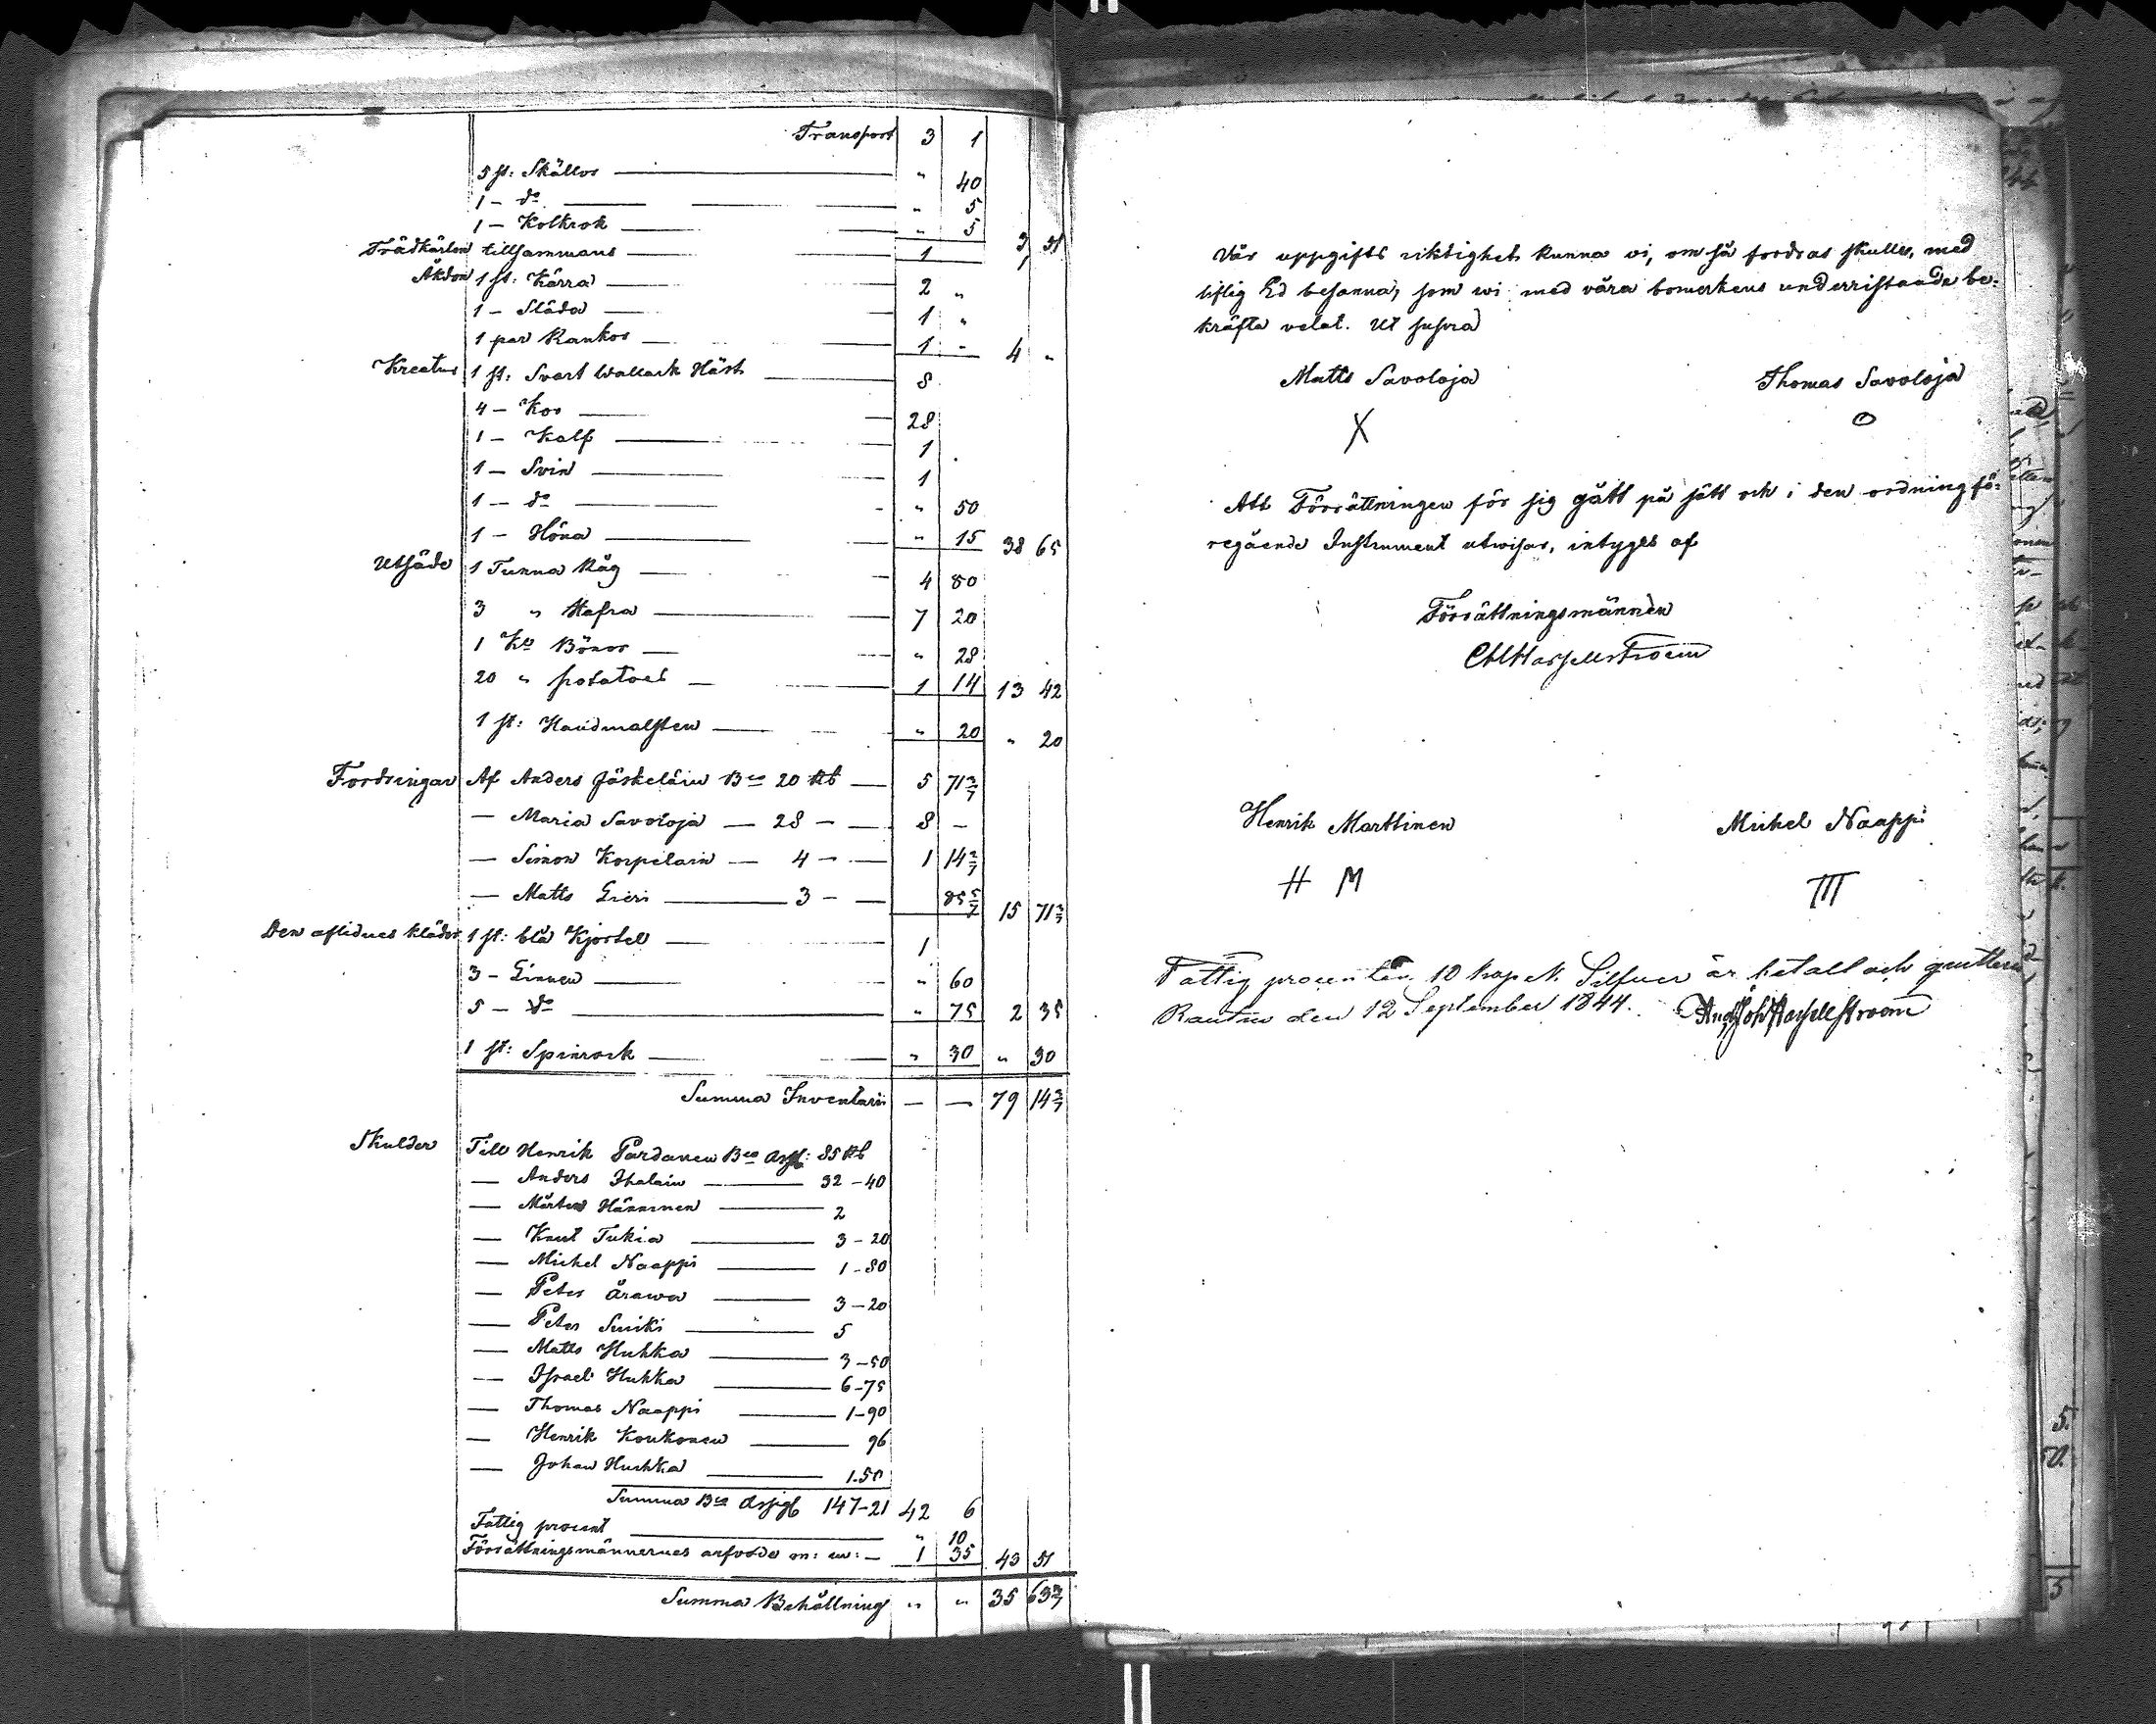 Transport 3 1
5 st: Skållor " 40
1 – do " 5
1 – Kolkrok " 5 3 51
Trädkärlen tillsammans 1 1
Åkdon 1 st: Kärra 2 "
1 – Släda 1 "
1 par Rankor 1 - 4 "
Kreatur 1 st: Svart Wallack Häst 8
4 – Kor 28
1 – Kalf 1
1 – Svin 1
1 – do " 50
1 – Höna " 15 38 65
Utsäde 1 Tunna Råg 4 80
3 " Hafra 7 20
1 Ka Bönor " 28
20 " potatoes 1 14 13 42
1 st: Handmalsten " 20 " 20
Fordringar Af Anders Jäskeläin Bco 20 Rb 5 71 3/7
— Maria Savoloja — 28 – 8 –
— Simon Korpelain — 4 – 1 14 2/7
— Matts Lieri 3 – 85 5/7 15 71 3/7
Den aflidnes kläder 1 st: blå Kjortel 1
3 – Linnen " 60
5 – do " 75 2 35
1 st: Spinrock " 30 " 30
Summa Inventarii — — 79 14 3/7
Skulder Till Henrik Pardanen Bco Assg: 85 Rb
— Anders Ihalain 32 – 40
— Mårten Hänninen 2
— Knut Tukia 3 – 20
— Michel Naappi 1 – 80
— Peter Ärawa 3 – 20
— Peter Suiki 5
— Matts Huhka 3 – 50
— Israel Huhka 6 – 75
— Thomas Naappi 1 – 90
— Henrik Koukonen 96
— Johan Huhka 1.50
Summa Bco Assigt 147 – 21 42 6
Fattig procent " 10
Förrättningsmännernes arfvode m: m: – 1 35 43 51
Summa Behållning " " 35 63 3/7
Vår uppgifts riktighet kunna vi, om så fordras skulle, med
liflig Ed besanna, som wi med våra bomerkens underristande be=
kräfta velat. Ut supra
Matts Savoloja Thomas Savoloja
X O
Att Förrättningen för sig gått på sätt och i den ordning fö=
regående Instrument utwisar, intygas af
Förrättningsmännen
Henrik Marttinen Michel Naappi
H M III
Fattig procenten 10 kopek Silfwer är betalt och quitterad
Rautus den 12 September 1844.